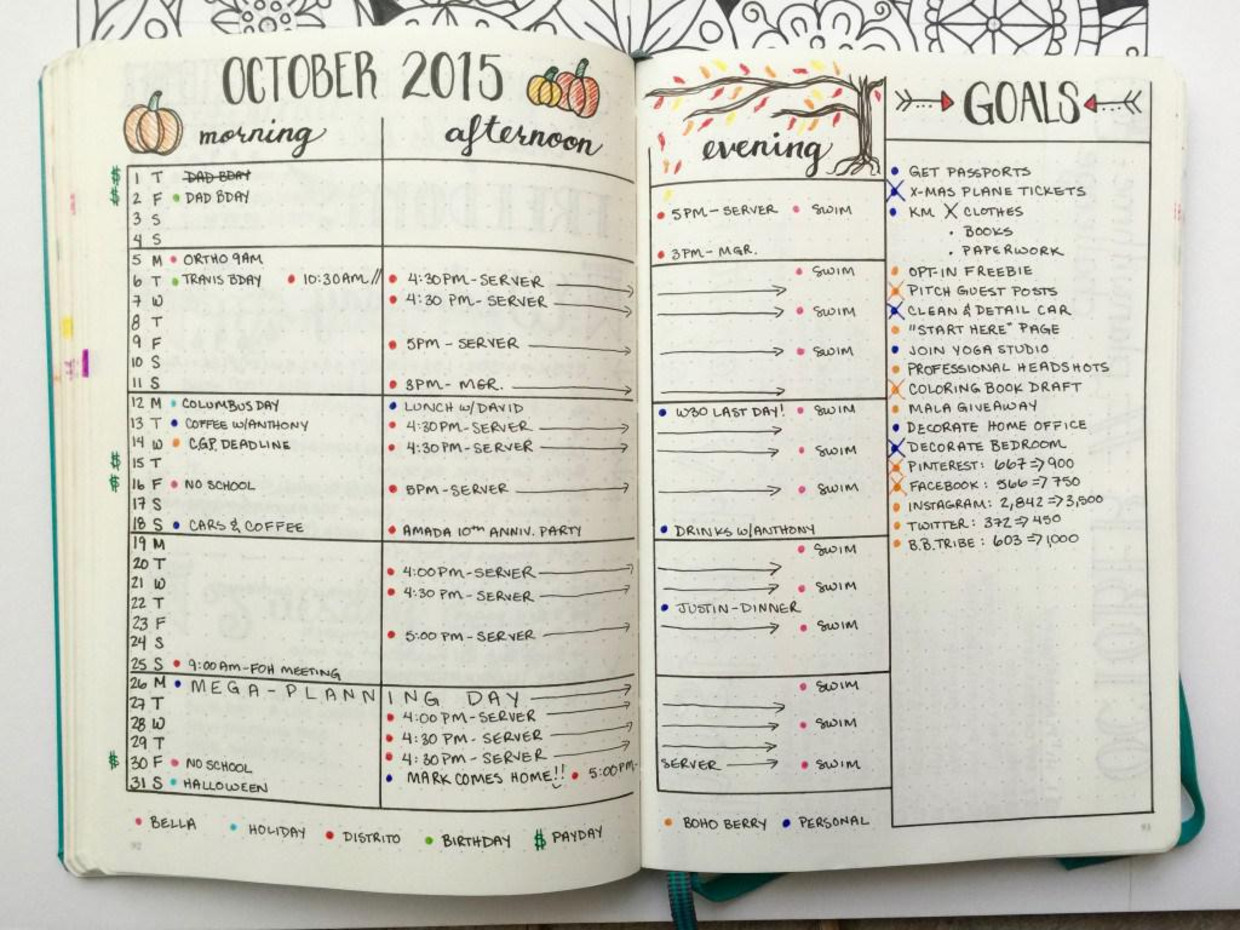 OCTOBER 2015
morning afternoon
$ 1 T DAD BDAY
$ 2 F • DAD BDAY
3 S
4 S
5 M • ORTHO 9AM
6 T • TRAVIS BDAY • 10:30AM // • 4:30PM-SERVER
7 W • 4:30 PM-SERVER
8 T
9 F • 5PM - SERVER
10 S
11 S • 3PM- MGR.
12 M • COLUMBUS DAY • LUNCH W/DAVID
13 T • COFFEE W/ANTHONY • 4:30PM-SERVER
14 W • C.G.P. DEADLINE • 4:30PM-SERVER
$ 15 T
$ 16 F • NO SCHOOL • 5PM-SERVER
17 S
18 S • CARS & COFFEE • AMADA 10TH ANNIV. PARTY
19 M
20 T • 4:00PM-SERVER
21 W • 4:30 PM-SERVER
22 T
23 F • 5:00 PM-SERVER
24 S
25 S • 9:00AM-FOH MEETING
26 M • MEGA-PLANNING DAY
27 T • 4:00 PM-SERVER
28 W • 4:30 PM-SERVER
29 T • 4:30PM-SERVER
$ 30 F • NO SCHOOL • MARK COMES HOME!! • 5:00PM-
31 S • HALLOWEEN
• BELLA • HOLIDAY • DISTRITO • BIRTHDAY $ PAYDAY
92
evening
• 5PM-SERVER • SWIM
• 3PM-MGR.
• SWIM
• SWIM
• SWIM
• W30 LAST DAY! • SWIM
• SWIM
• SWIM
• DRINKS W/ANTHONY
• SWIM
• SWIM
• JUSTIN-DINNER
• SWIM
• SWIM
• SWIM
SERVER • SWIM
• BOHO BERRY • PERSONAL
GOALS
• GET PASSPORTS
• X-MAS PLANE TICKETS
• KM X CLOTHES
• BOOKS
• PAPERWORK
• OPT-IN FREEBIE
• PITCH GUEST POSTS
• CLEAN & DETAIL CAR
• "START HERE" PAGE
• JOIN YOGA STUDIO
• PROFESSIONAL HEADSHOTS
• COLORING BOOK DRAFT
• MALA GIVEAWAY
• DECORATE HOME OFFICE
• DECORATE BEDROOM
• PINTEREST: 667 => 900
• FACEBOOK: 566 => 750
• INSTAGRAM: 2,842 => 3,500
• TWITTER: 372 => 450
• B.B.TRIBE: 603 => 1,000
93